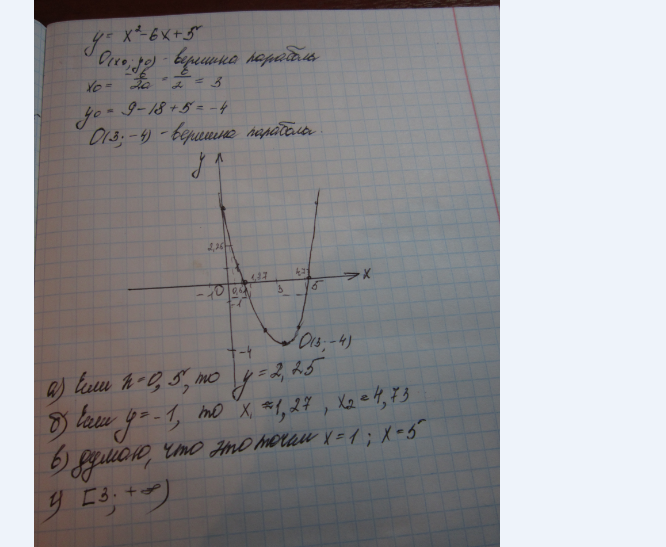 y = x²-6x+5
O(x₀; y₀) - вершина параболы
x₀ = -b/2a = 6/2 = 3
y₀ = 9-18+5 = -4
O(3; -4) - вершина параболы.
y
2,25
1,27
4,73
x
-1
O
0,5
3
5
-1
O(3; -4)
-4
а) Если x=0,5, то y=2,25
б) Если y=-1, то x₁≈1,27, x₂≈4,73
в) думаю, что это точки x=1; x=5
г) [3; +∞)